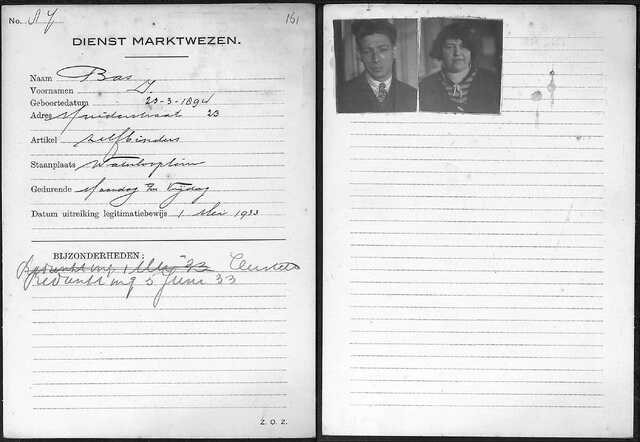 No. 151
DIENST MARKTWEZEN.
Naam Bas
Voornamen J.
Geboortedatum 23-3-1894
Adres Muiderstraat 23
Artikel zelfbinders
Staanplaats Waterlooplein
Gedurende Maandag Vrijdag
Datum uitreiking legitimatiebewijs 1 Mei 1933
BIJZONDERHEDEN:
Bedankt ing 1 Mei 33
Bedankt ing 5 Juni 33
Z. O. Z.